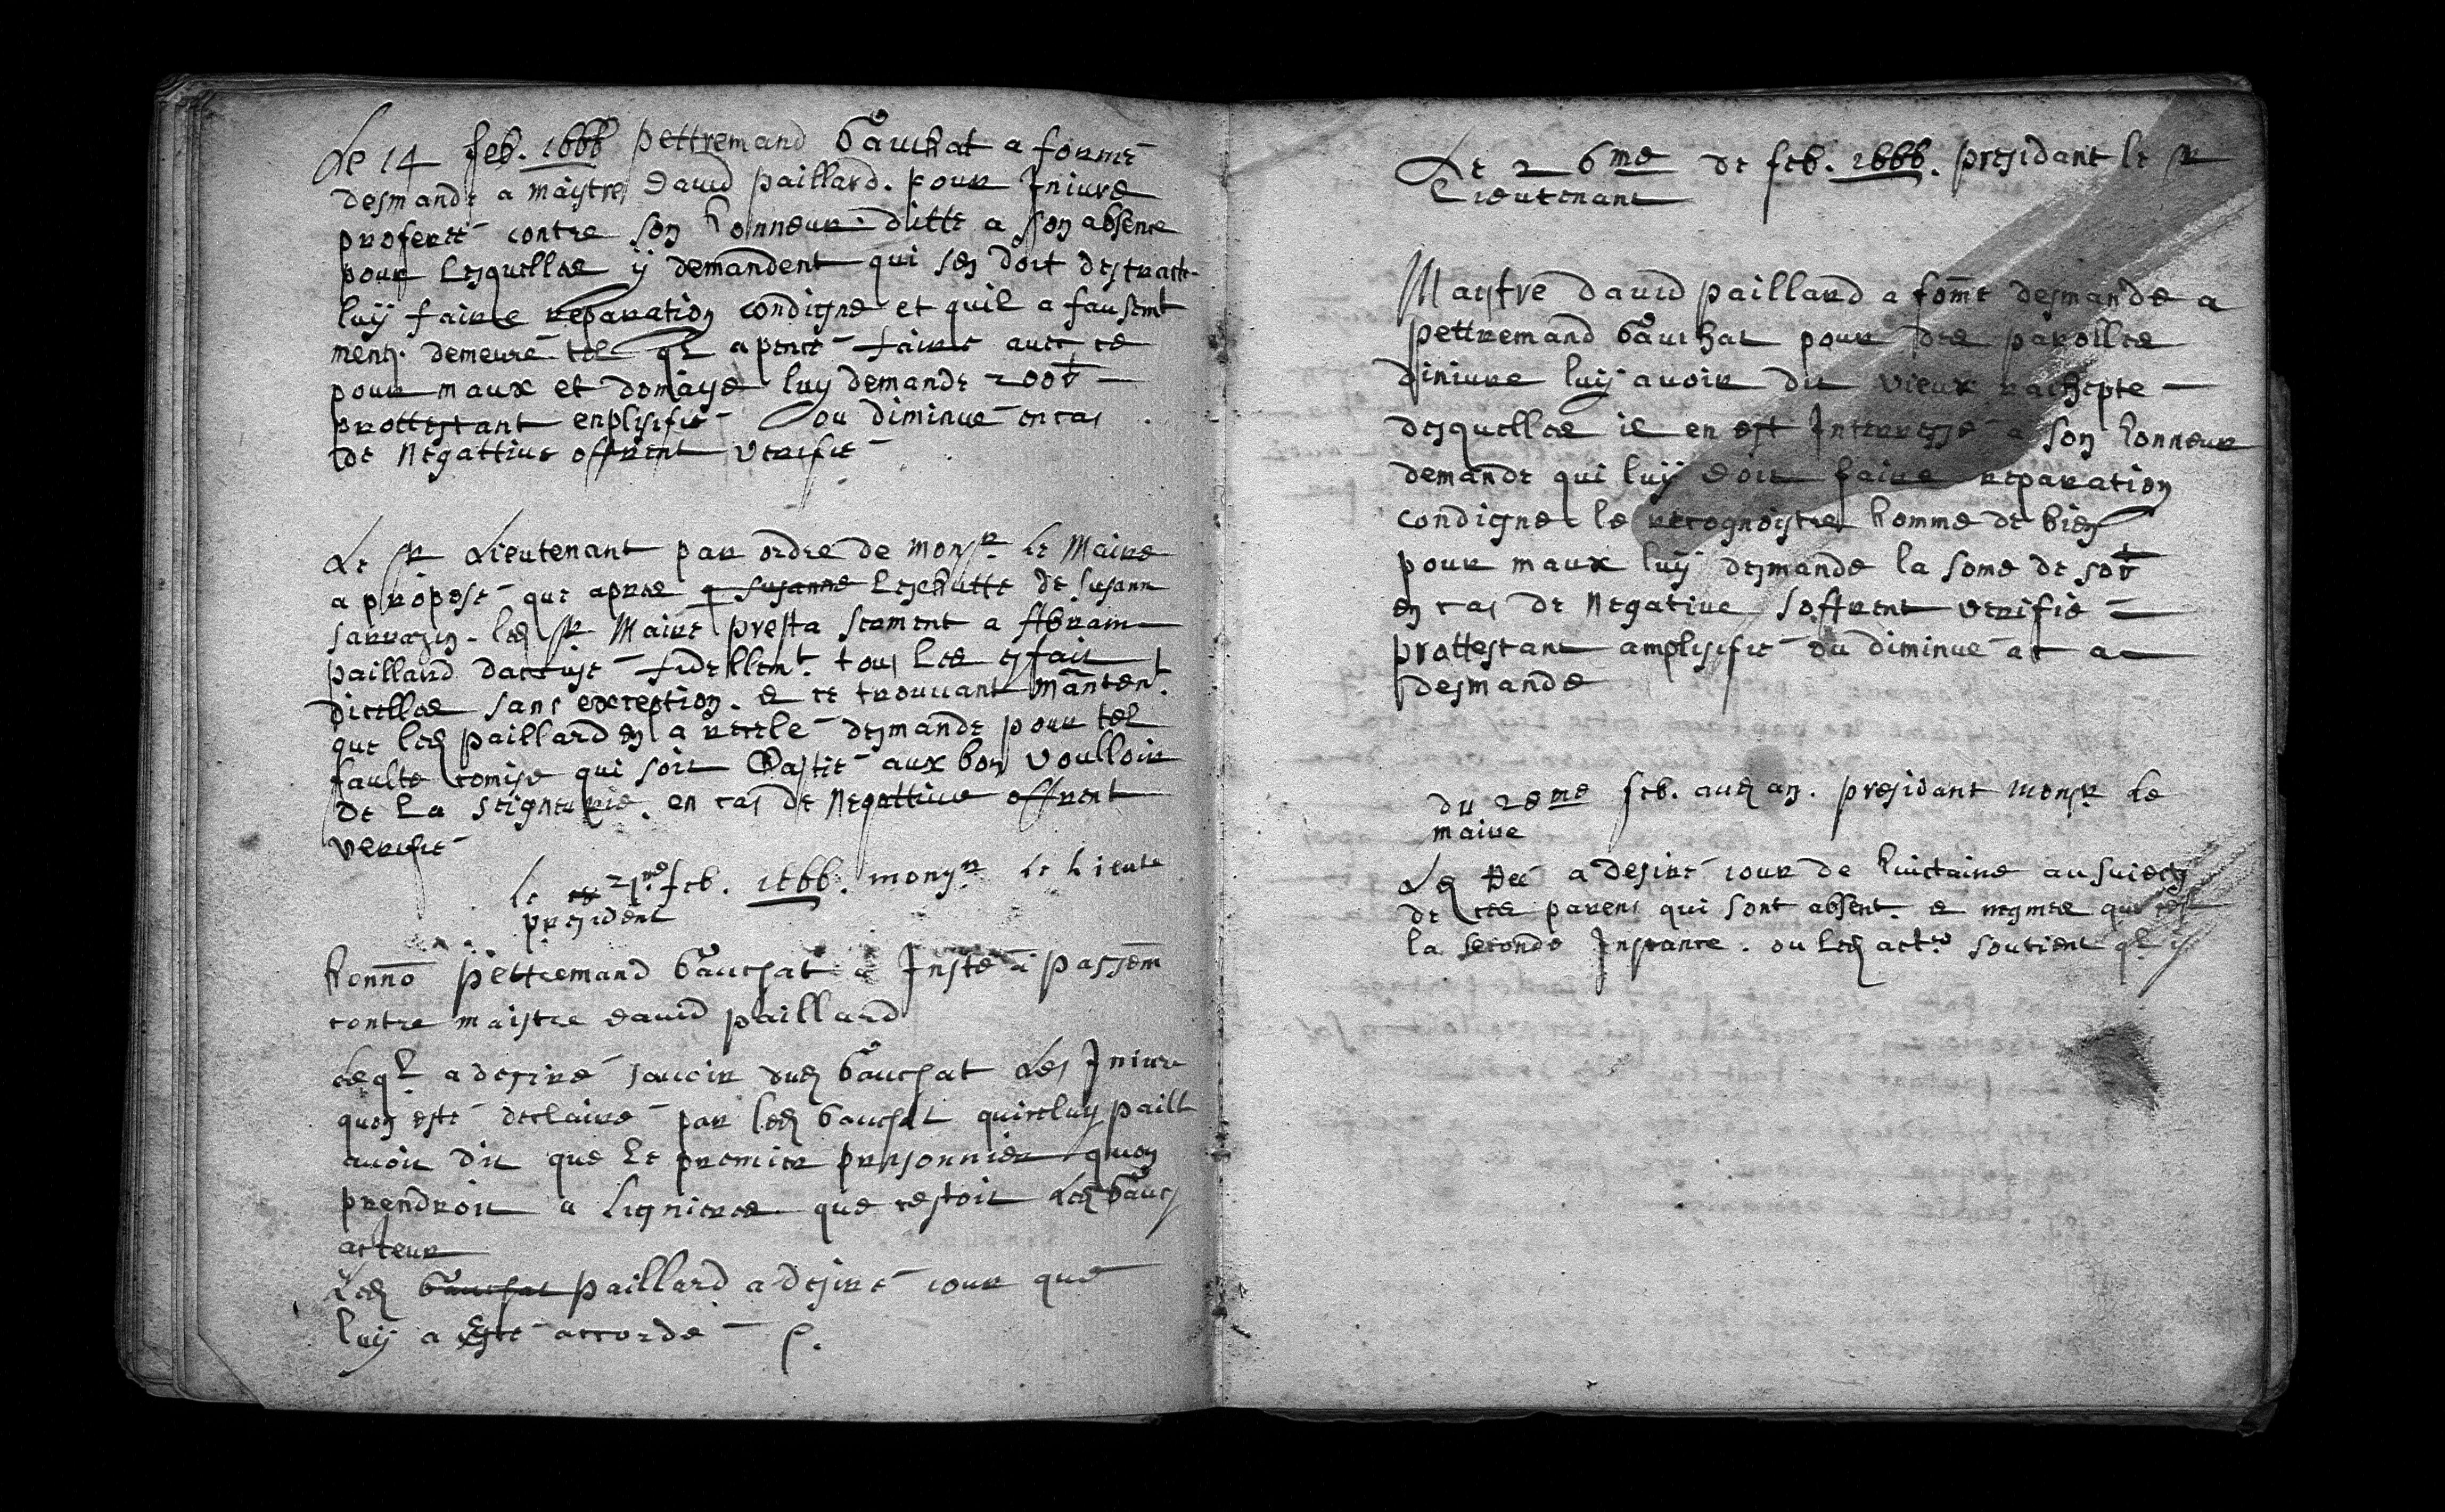 Le 14 feb. 1666 pettremand bauchat a formé
desmande a maistre david paillard. pour Iniure
proferé contre son honneur. ditte a son absence
pour lesquelles ÿ demandent qui sen doit destracte
luÿ faire reparation condigne et quil a fausemt
ment. demeuré tel ql a pencé faire avec ce
pour maux et domage luy demande 200 
prottestant enplisifié ou diminué en cas
de Negattive offrent verifié
Le Sr Lieutenant par ordre de monsr. le Maire
a proposé que apres q susanne leschutte de susanne
sarrazin. led Sr Maire presta serment a Abram
paillard daccusé fidellemt. tous les esfait
dicelles sans exception. e ce trouvant maintent.
que led paillard en a recelé desmande pour tel
faulte comise qui soit Chastié aux bon voulloir
de La seigneurie. en cas de Negattive offrent
verifié
Le 21me feb. 1666. monsr. le Lieute
president
honno pettremand bauchat a Insté a passem
contre maistre david paillard
Leql a desiré scavoir dud bauchat Les Iniure
quon esté declairé par led bauchat quiceluy paill
avoit dit que le premier prisonnier quon
prendroit a Lignieres que cestoit Led bauch
acteur
Led bauchat paillard a desiré iour que
luÿ a Esté accordé
Le 26me de feb. 1666. presidant le Sr
Lieutenant
Maistre david paillard a formé desmande a
pettremand bauchat pour des parolles
diniure luÿ avoir dit vieux
desquelles il en est Interressé a son honneur
demande qui luÿ doit faire reparation
condigne le recognoistre homme de bien
pour maux luÿ desmande la some de 
en cas de Negative soffrent verifié
prottestant amplisifié ou diminué
desmande
du 28me feb. aud an. presidant monsr Le
maire
Led a desiré iour de huictaine au suiect
de ces parens qui sont absent. e mesmes que cest
la seconde Instance. ou led actr soutient ql